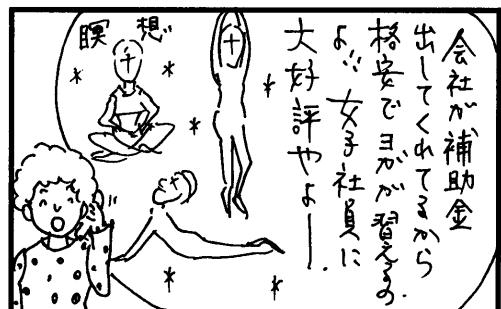 会社が補助金
出してくれてるから
格安でヨガが習えるの
よ!! 女子社員に
大好評やよー.
瞑想